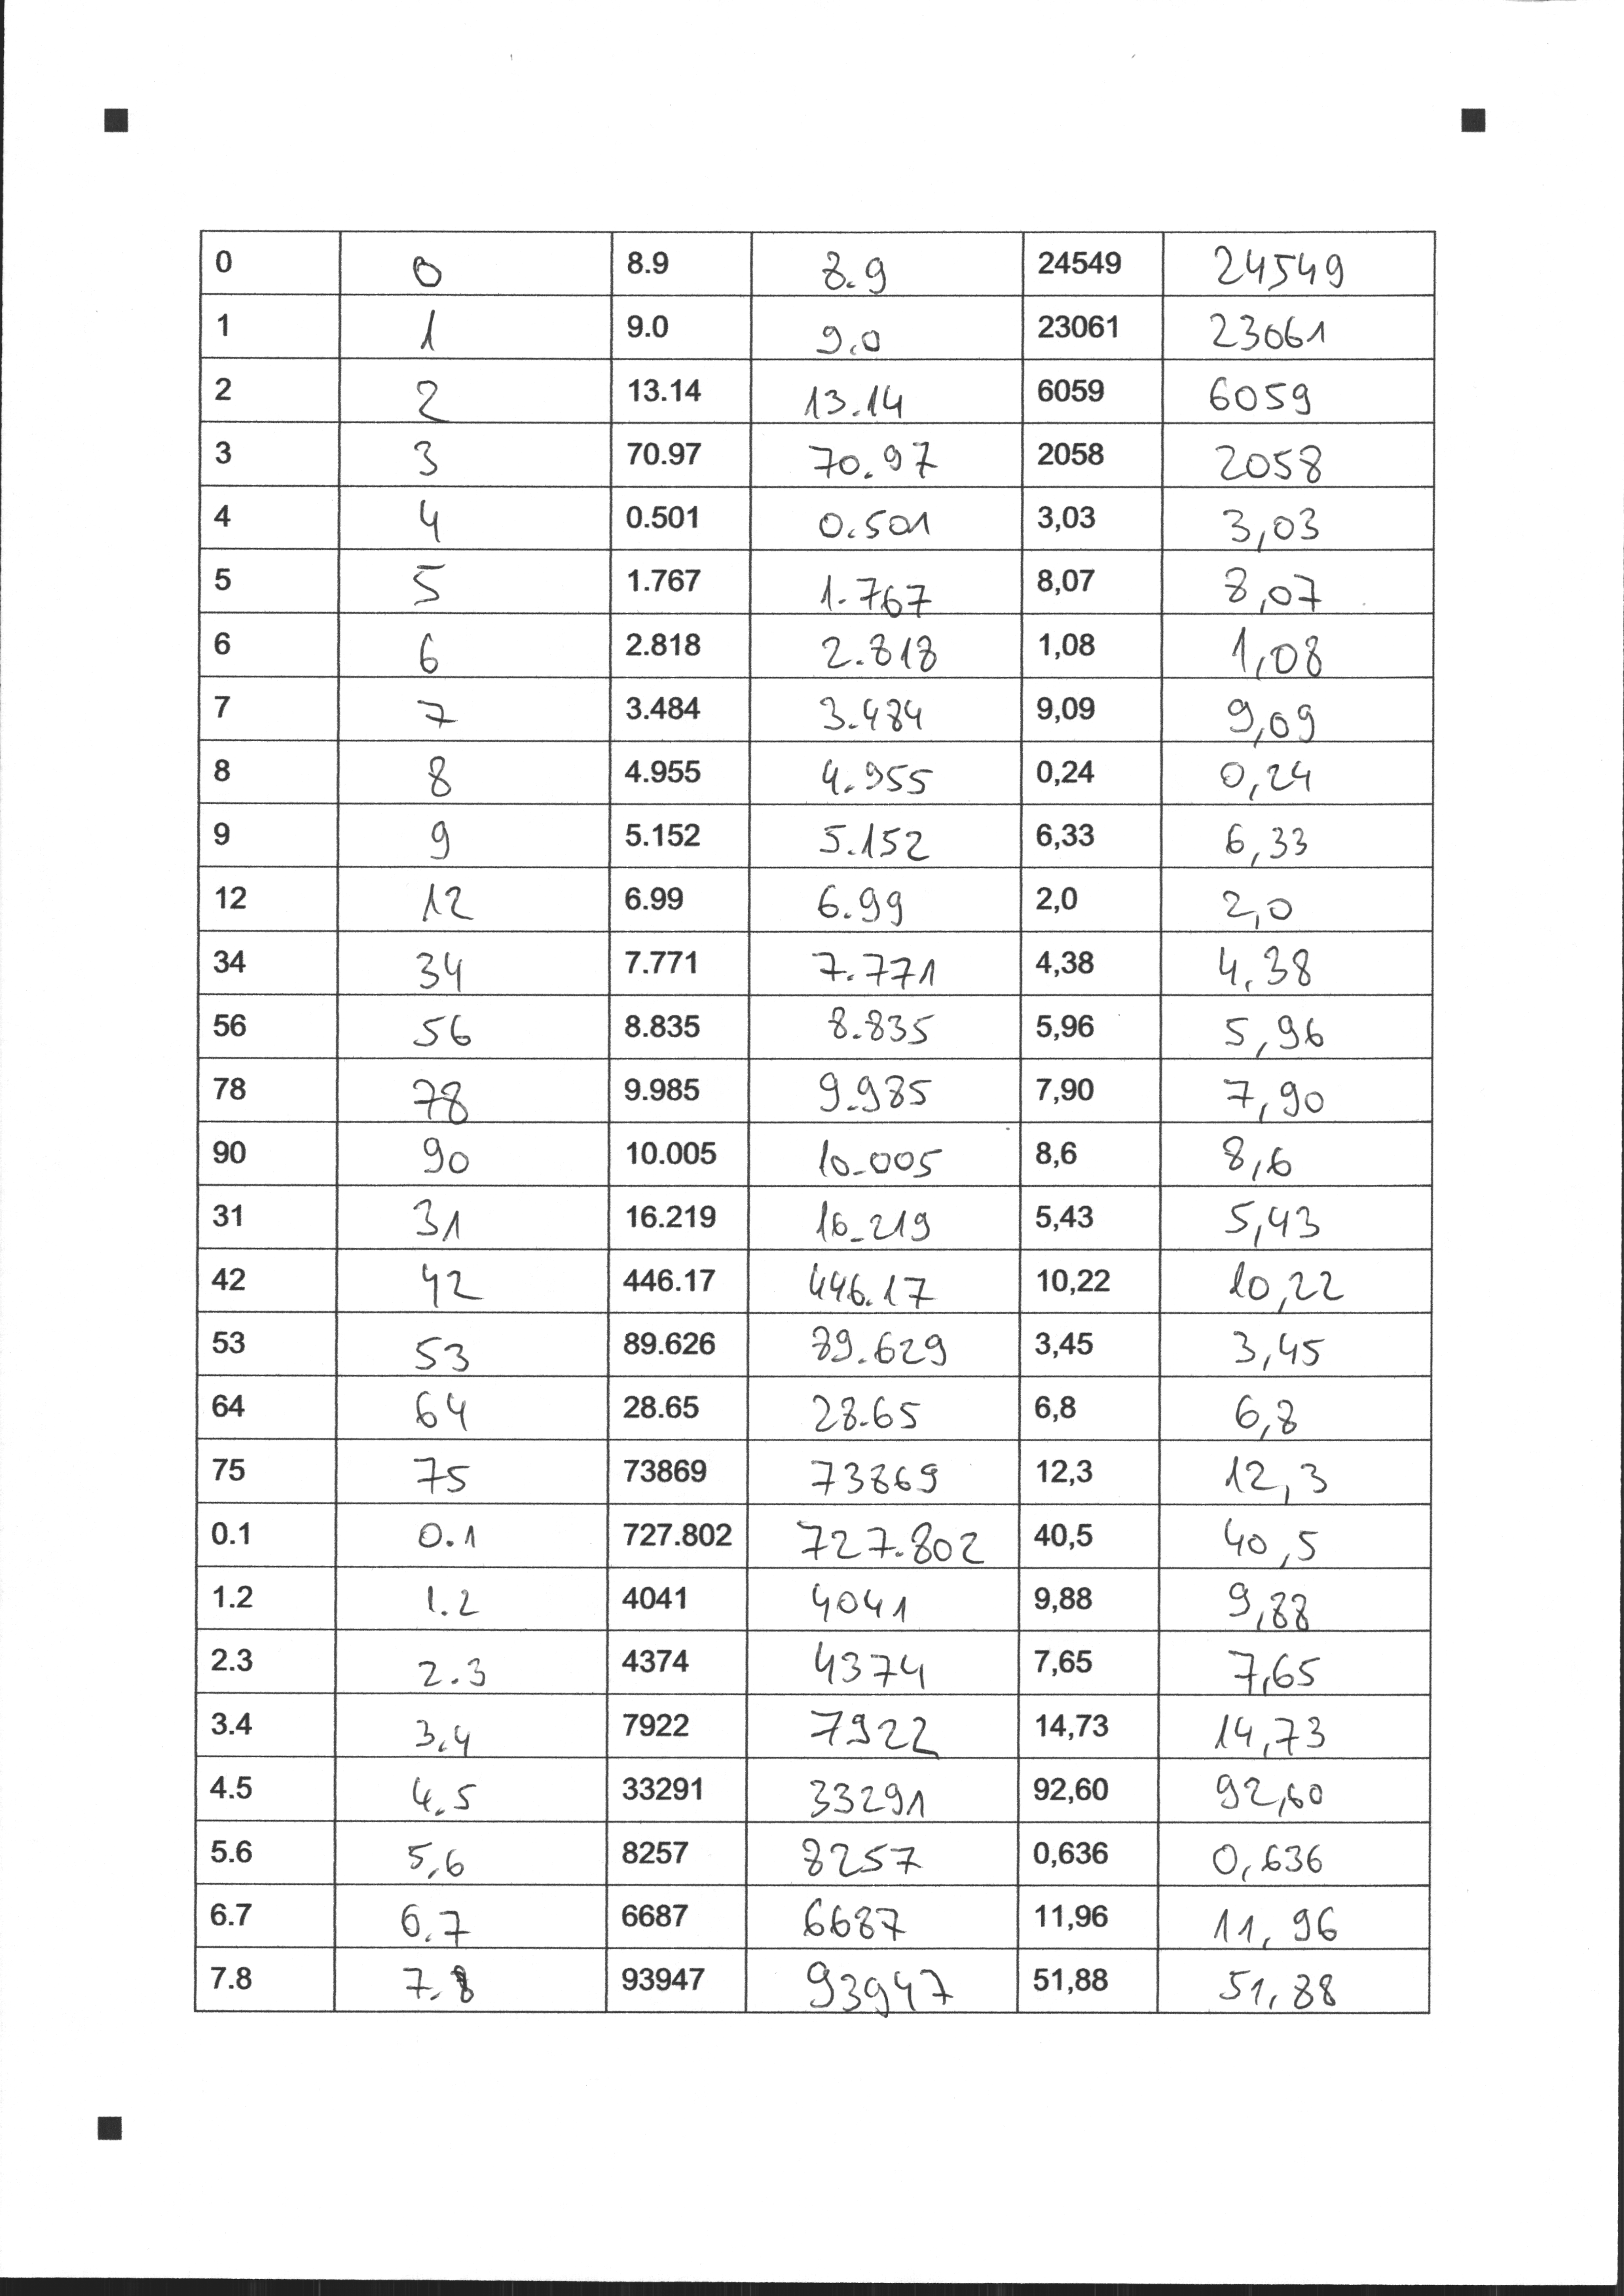 0 0 8.9 8.9 24549 24549
1 1 9.0 9.0 23061 23061
2 2 13.14 13.14 6059 6059
3 3 70.97 70.97 2058 2058
4 4 0.501 0.501 3,03 3,03
5 5 1.767 1.767 8,07 8,07
6 6 2.818 2.818 1,08 1,08
7 7 3.484 3.484 9,09 9,09
8 8 4.955 4.955 0,24 0,24
9 9 5.152 5.152 6,33 6,33
12 12 6.99 6.99 2,0 2,0
34 34 7.771 7.771 4,38 4,38
56 56 8.835 8.835 5,96 5,96
78 78 9.985 9.985 7,90 7,90
90 90 10.005 10.005 8,6 8,6
31 31 16.219 16.219 5,43 5,43
42 42 446.17 446.17 10,22 10,22
53 53 89.626 89.629 3,45 3,45
64 64 28.65 28.65 6,8 6,8
75 75 73869 73869 12,3 12,3
0.1 0.1 727.802 727.802 40,5 40,5
1.2 1.2 4041 4041 9,88 9,88
2.3 2.3 4374 4374 7,65 7,65
3.4 3.4 7922 7922 14,73 14,73
4.5 4.5 33291 33291 92,60 92,60
5.6 5,6 8257 8257 0,636 0,636
6.7 6.7 6687 6687 11,96 11,96
7.8 7.8 93947 93947 51,88 51,88